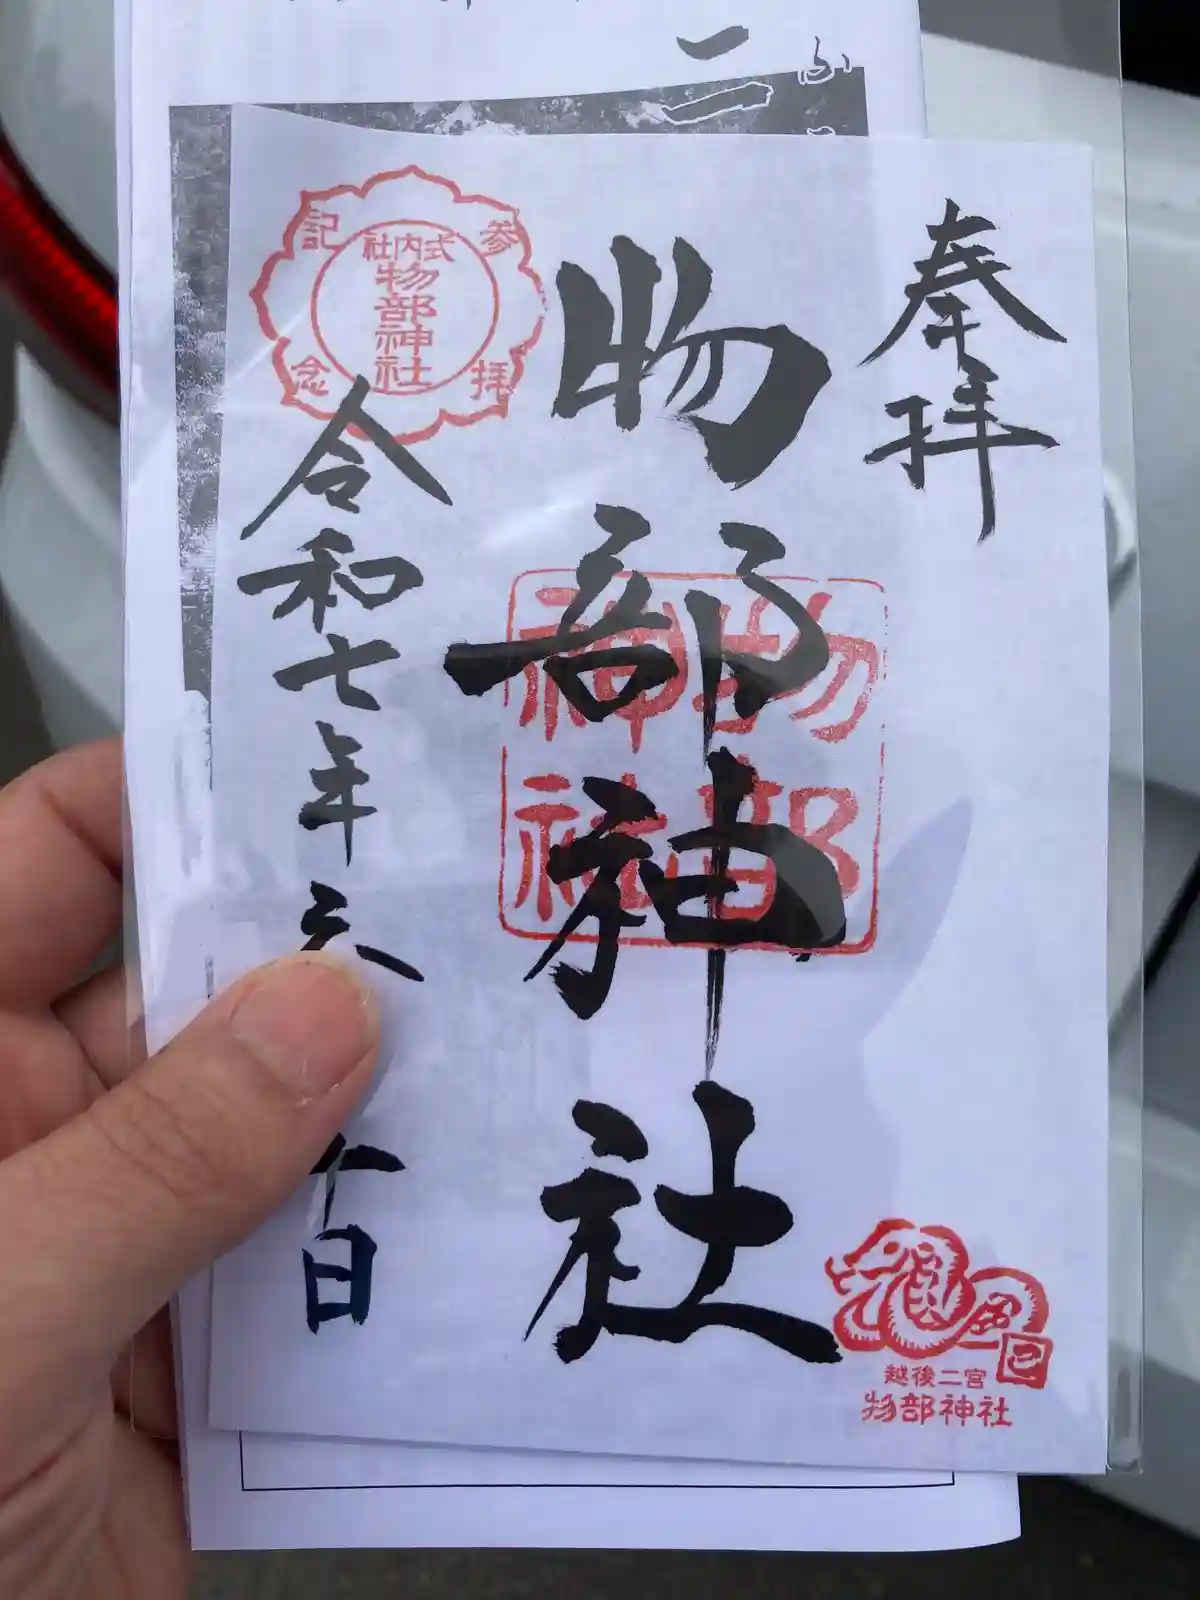 奉拝
物部神社
物部
神社
参拝記念
式内社
物部神社
令和七年
十日
巳
越後二宮
物部神社